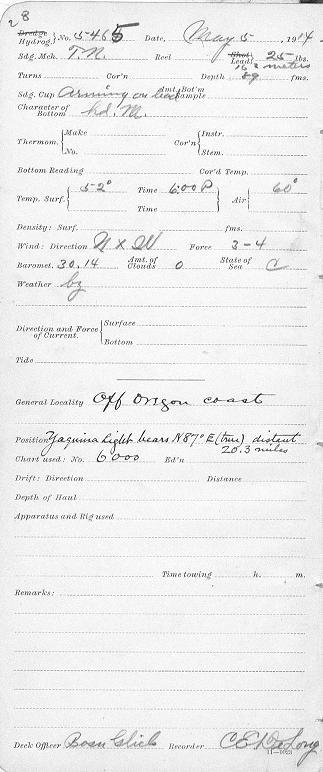 28
Dredge
Hydrog. No. 5465 Date, May 5, 1914
Sdg. Mch. T.N. Reel Shot Lead 25 lbs.
Turns Cor'n Depth 89 fms.
Sdg. Cup Arming on lead Amt Bot'm Sample
Character of Bottom hd. M.
Thermom. Make No. Cor'n Instr. Stem.
Bottom Reading Cor'd Temp.
Temp. Surf. 52° Time 6:00 P Air 60°
Time
Density: Surf. fms.
Wind: Direction N x W Force 3-4
Baromet. 30.14 Amt. of Clouds 0 State of Sea C
Weather bz
Direction and Force of Current. Surface
Bottom
Tide
General Locality Off Oregon coast
Position Yaquina Light bears N87°E (true) distant
20.3 miles
Chart used: No. 6000 Ed'n
Drift: Direction Distance
Depth of Haul
Apparatus and Rig used
Time towing h. m.
Remarks:
Deck Officer Bosn Glick Recorder C E DeLong